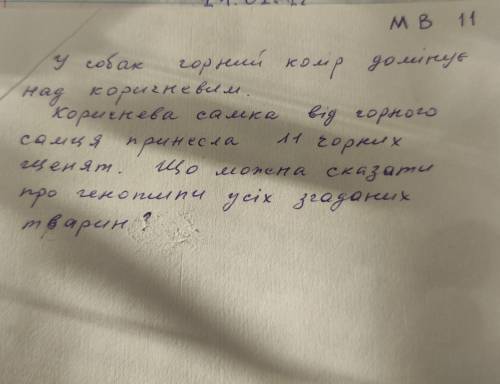 М В 11
У собак чорний колір домінує
над коричневим.
Коричнева самка від чорного
самця принесла 11 чорних
щенят. Що можна сказати
про генотипи усіх згаданих
тварин?